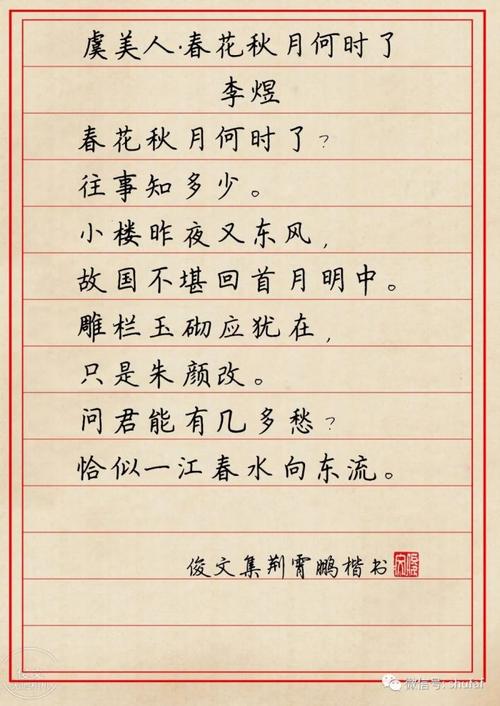 虞美人·春花秋月何时了
李煜
春花秋月何时了?
往事知多少。
小楼昨夜又东风,
故国不堪回首月明中。
雕栏玉砌应犹在,
只是朱颜改。
问君能有几多愁?
恰似一江春水向东流。
俊文集荆霄鹏楷书
微信号: shufai